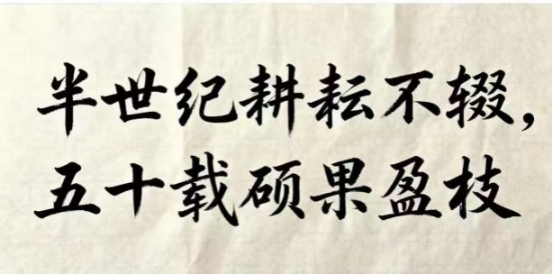 半世纪耕耘不辍,
五十载硕果盈枝